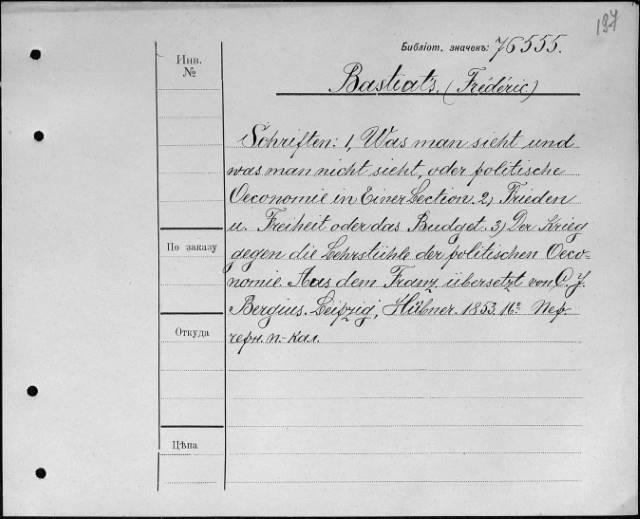 197
Библіот. значекъ: 76555.
Инв.
№
Bastiat's. (Frédéric)
Schriften: 1, Was man sieht und
was man nicht sieht, oder politische
Oeconomie in Einer Lection. 2) Frieden
u. Freiheit oder das Budget. 3) Der Krieg
gegen die Lehrstühle der politischen Oeco=
nomie. Aus dem Franz übersetzt von C. J.
Bergius. Leipzig, Hübner. 1853. 16º
черн. п.-кал.
По заказу
Откуда
Цѣна